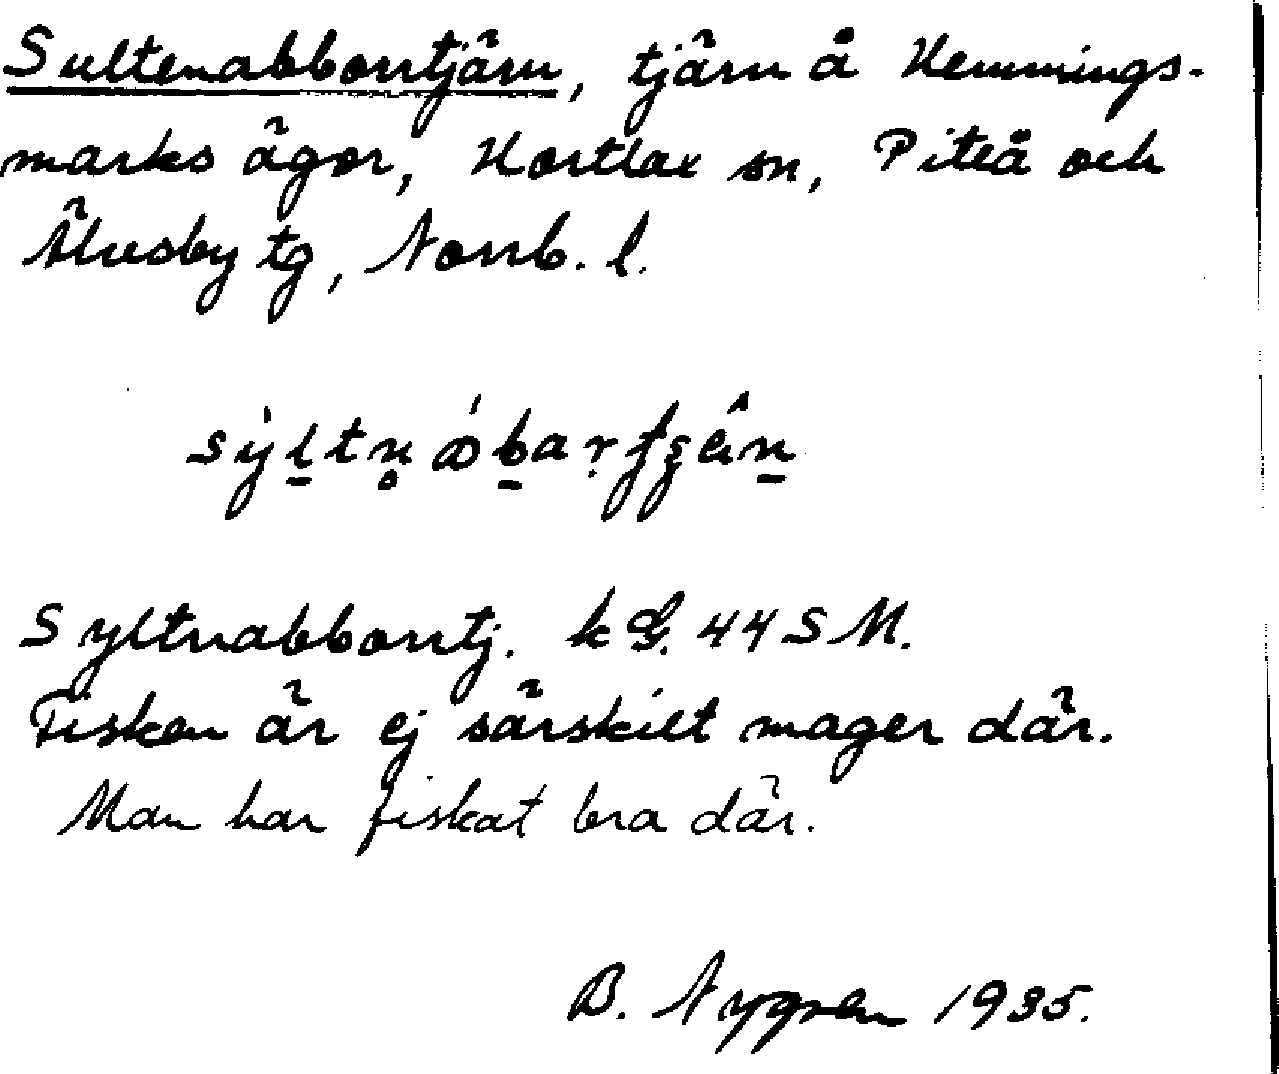 Sultenabborrtjärn, tjärn å Hemmings-
marks ägor, Hortlax sn, Piteå och
Älvsby tg, Norrb. l.
Syltnabborrtj. k G. 44 S M.
Fisken är ej särskilt mager där.
Man har fiskat bra där.
B. Nygren 1935.